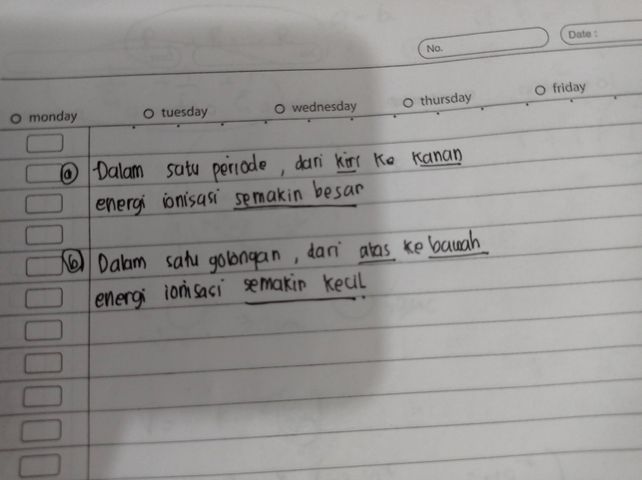 No.
Date :
monday tuesday wednesday thursday friday
(a) Dalam satu periode, dari kiri ke kanan
energi ionisasi semakin besar
(b) Dalam satu golongan, dari atas ke bawah
energi ionisasi semakin kecil